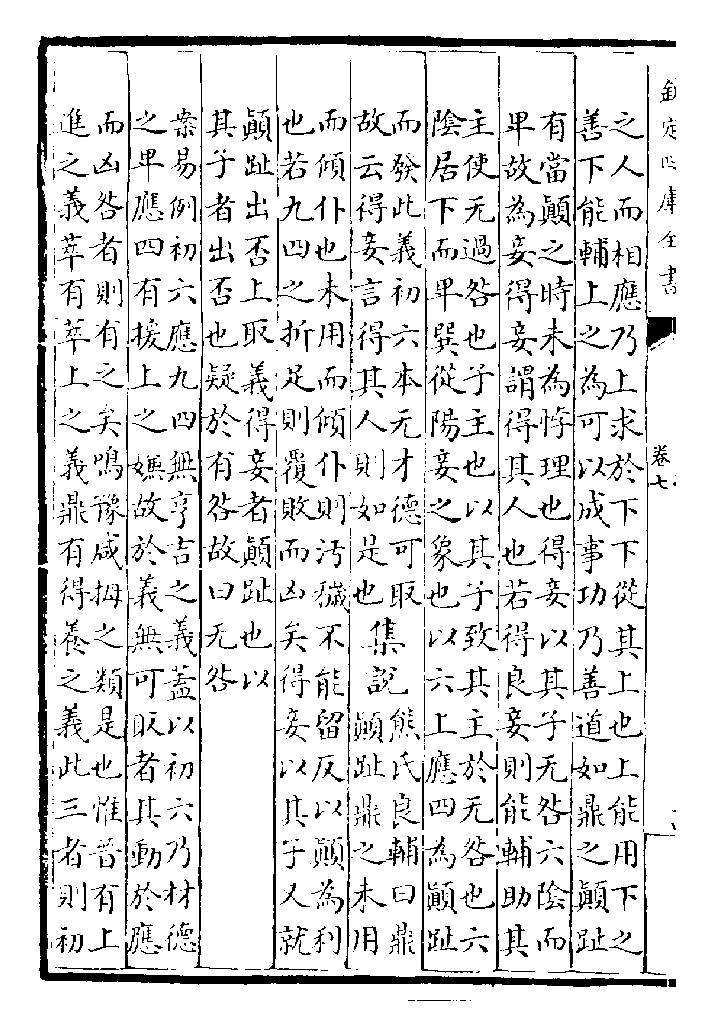 欽定四庫全書
卷七
之人而相應乃上求於下下從其上也上能用下之
善下能輔上之為可以成事功乃善道如鼎之顛趾
有當顛之時未為悖理也得妾以其子无咎六陰而
卑故為妾得妾謂得其人也若得良妾則能輔助其
主使无過咎也子主也以其子致其主於无咎也六
陰居下而卑巽從陽妾之象也以六上應四為顛趾
而發此義初六本无才德可取
故云得妾言得其人則如是也
集說
熊氏良輔曰鼎
顛趾鼎之未用
而傾仆也未用而傾仆則污穢不能留反以顛為利
也若九四之折足則覆敗而凶矣得妾以其子又就
顛趾出否上取義得妾者顛趾也以
其子者出否也疑於有咎故曰无咎
案易例初六應九四無亨吉之義蓋以初六乃材德
之卑應四有援上之嫌故於義無可取者其動於應
而凶咎者則有之矣鳴豫咸拇之類是也惟晉有上
進之義萃有萃上之義鼎有得養之義此三者則初